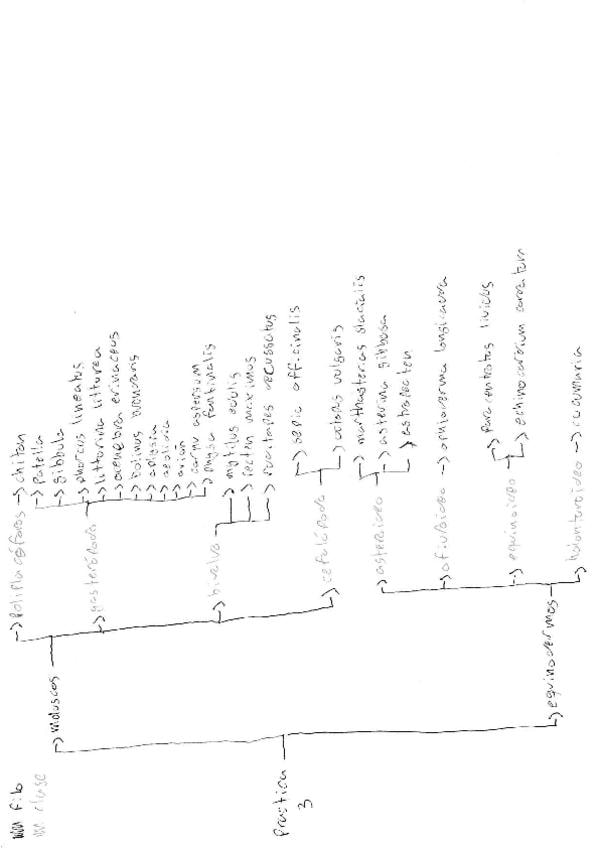 filo
clase
Practica
3
moluscos
poliplacóforos
chiton
gasterópodo
patella
gibbula
phorcus lineatus
littorina litturea
ocenebra erinaceus
bolinus brandaris
aplysia
aeolidia
arion
cornu aspersum
physa fontinalis
bivalvo
mytilus edulis
pecten maximus
ruditapes decussatus
cefalópodo
sepia officinalis
octopus vulgaris
equinodermos
asteroideo
marthasterias glacialis
asterina gibbosa
astropecten
ofiuroideo
ophioderma longicauda
equinoideo
paracentrotus lividus
echinocardium cordatum
holoturoideo
cucumaria